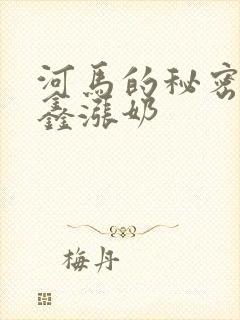 河马的秘密
鑫涨奶
梅丹